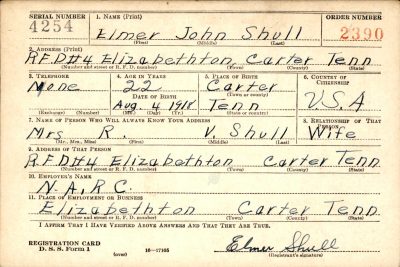 SERIAL NUMBER 1. NAME (Print) ORDER NUMBER
4254 Elmer John Shull 2390
(First) (Middle) (Last)
2. ADDRESS (Print)
R.F.D#4 Elizabethton, Carter Tenn
(Number and street or R. F. D. number) (Town) (County) (State)
3. TELEPHONE 4. AGE IN YEARS 5. PLACE OF BIRTH 6. COUNTRY OF CITIZENSHIP
None 22 Carter
DATE OF BIRTH (Town or county) U.S.A
Aug. 4 1918 Tenn
(Exchange) (Number) (Mo.) (Day) (Yr.) (State or country)
7. NAME OF PERSON WHO WILL ALWAYS KNOW YOUR ADDRESS 8. RELATIONSHIP OF THAT PERSON
Mrs R. V. Shull Wife
(Mr., Mrs., Miss) (First) (Middle) (Last)
9. ADDRESS OF THAT PERSON
R.F.D#4 Elizabethton Carter Tenn
(Number and street or R. F. D. number) (Town) (County) (State)
10. EMPLOYER'S NAME
N.A.R.C.
11. PLACE OF EMPLOYMENT OR BUSINESS
Elizabethton Carter Tenn
(Number and street or R. F. D. number) (Town) (County) (State)
I AFFIRM THAT I HAVE VERIFIED ABOVE ANSWERS AND THAT THEY ARE TRUE.
REGISTRATION CARD
D. S. S. Form 1 16—17105 Elmer Shull
(over) (Registrant's signature)